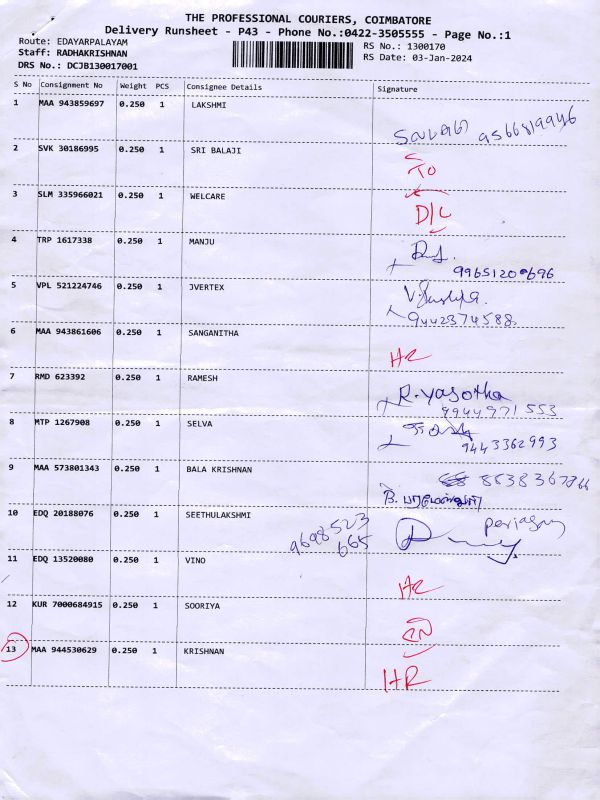 THE PROFESSIONAL COURIERS, COIMBATORE
Delivery Runsheet - P43 - Phone No.:0422-3505555 - Page No.:1
Route: EDAYARPALAYAM RS No.: 1300170
Staff: RADHAKRISHNAN RS Date: 03-Jan-2024
DRS No.: DCJB130017001
S No Consignment No Weight PCS Consignee Details Signature
1 MAA 943859697 0.250 1 LAKSHMI
2 SVK 30186995 0.250 1 SRI BALAJI
TO
3 SLM 335966021 0.250 1 WELCARE
D/L
4 TRP 1617338 0.250 1 MANJU
9965120696
5 VPL 521224746 0.250 1 JVERTEX
9442374588
6 MAA 943861606 0.250 1 SANGANITHA
7 RMD 623392 0.250 1 RAMESH R. Yasotha
9944971553
8 MTP 1267908 0.250 1 SELVA
9443362993
9 MAA 573801343 0.250 1 BALA KRISHNAN
10 EDQ 20188076 0.250 1 SEETHULAKSHMI
9698523
665
11 EDQ 13520080 0.250 1 VINO
12 KUR 7000684915 0.250 1 SOORIYA
13 MAA 944530629 0.250 1 KRISHNAN
HR